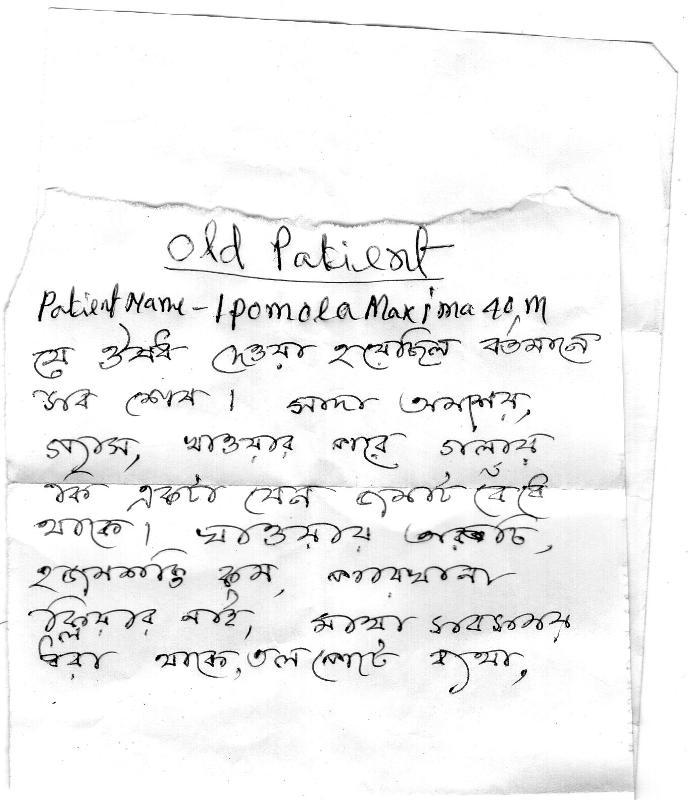 Old Patient
Patient Name - Ipomola Maxima 40, M
যে ঔষধ দেওয়া হয়েছিল বর্তমানে
সব শেষ। সাদা আমাশয়,
গ্যাস, খাওয়ার পরে গলায়
কি একটা যেন জমাট বেঁধে
থাকে। খাওয়ায় অরুচি,
হজমশক্তি কম, পায়খানা
ক্লিয়ার নাই, মাথা সবসময়
ধরা থাকে, তল পেটে ব্যথা,